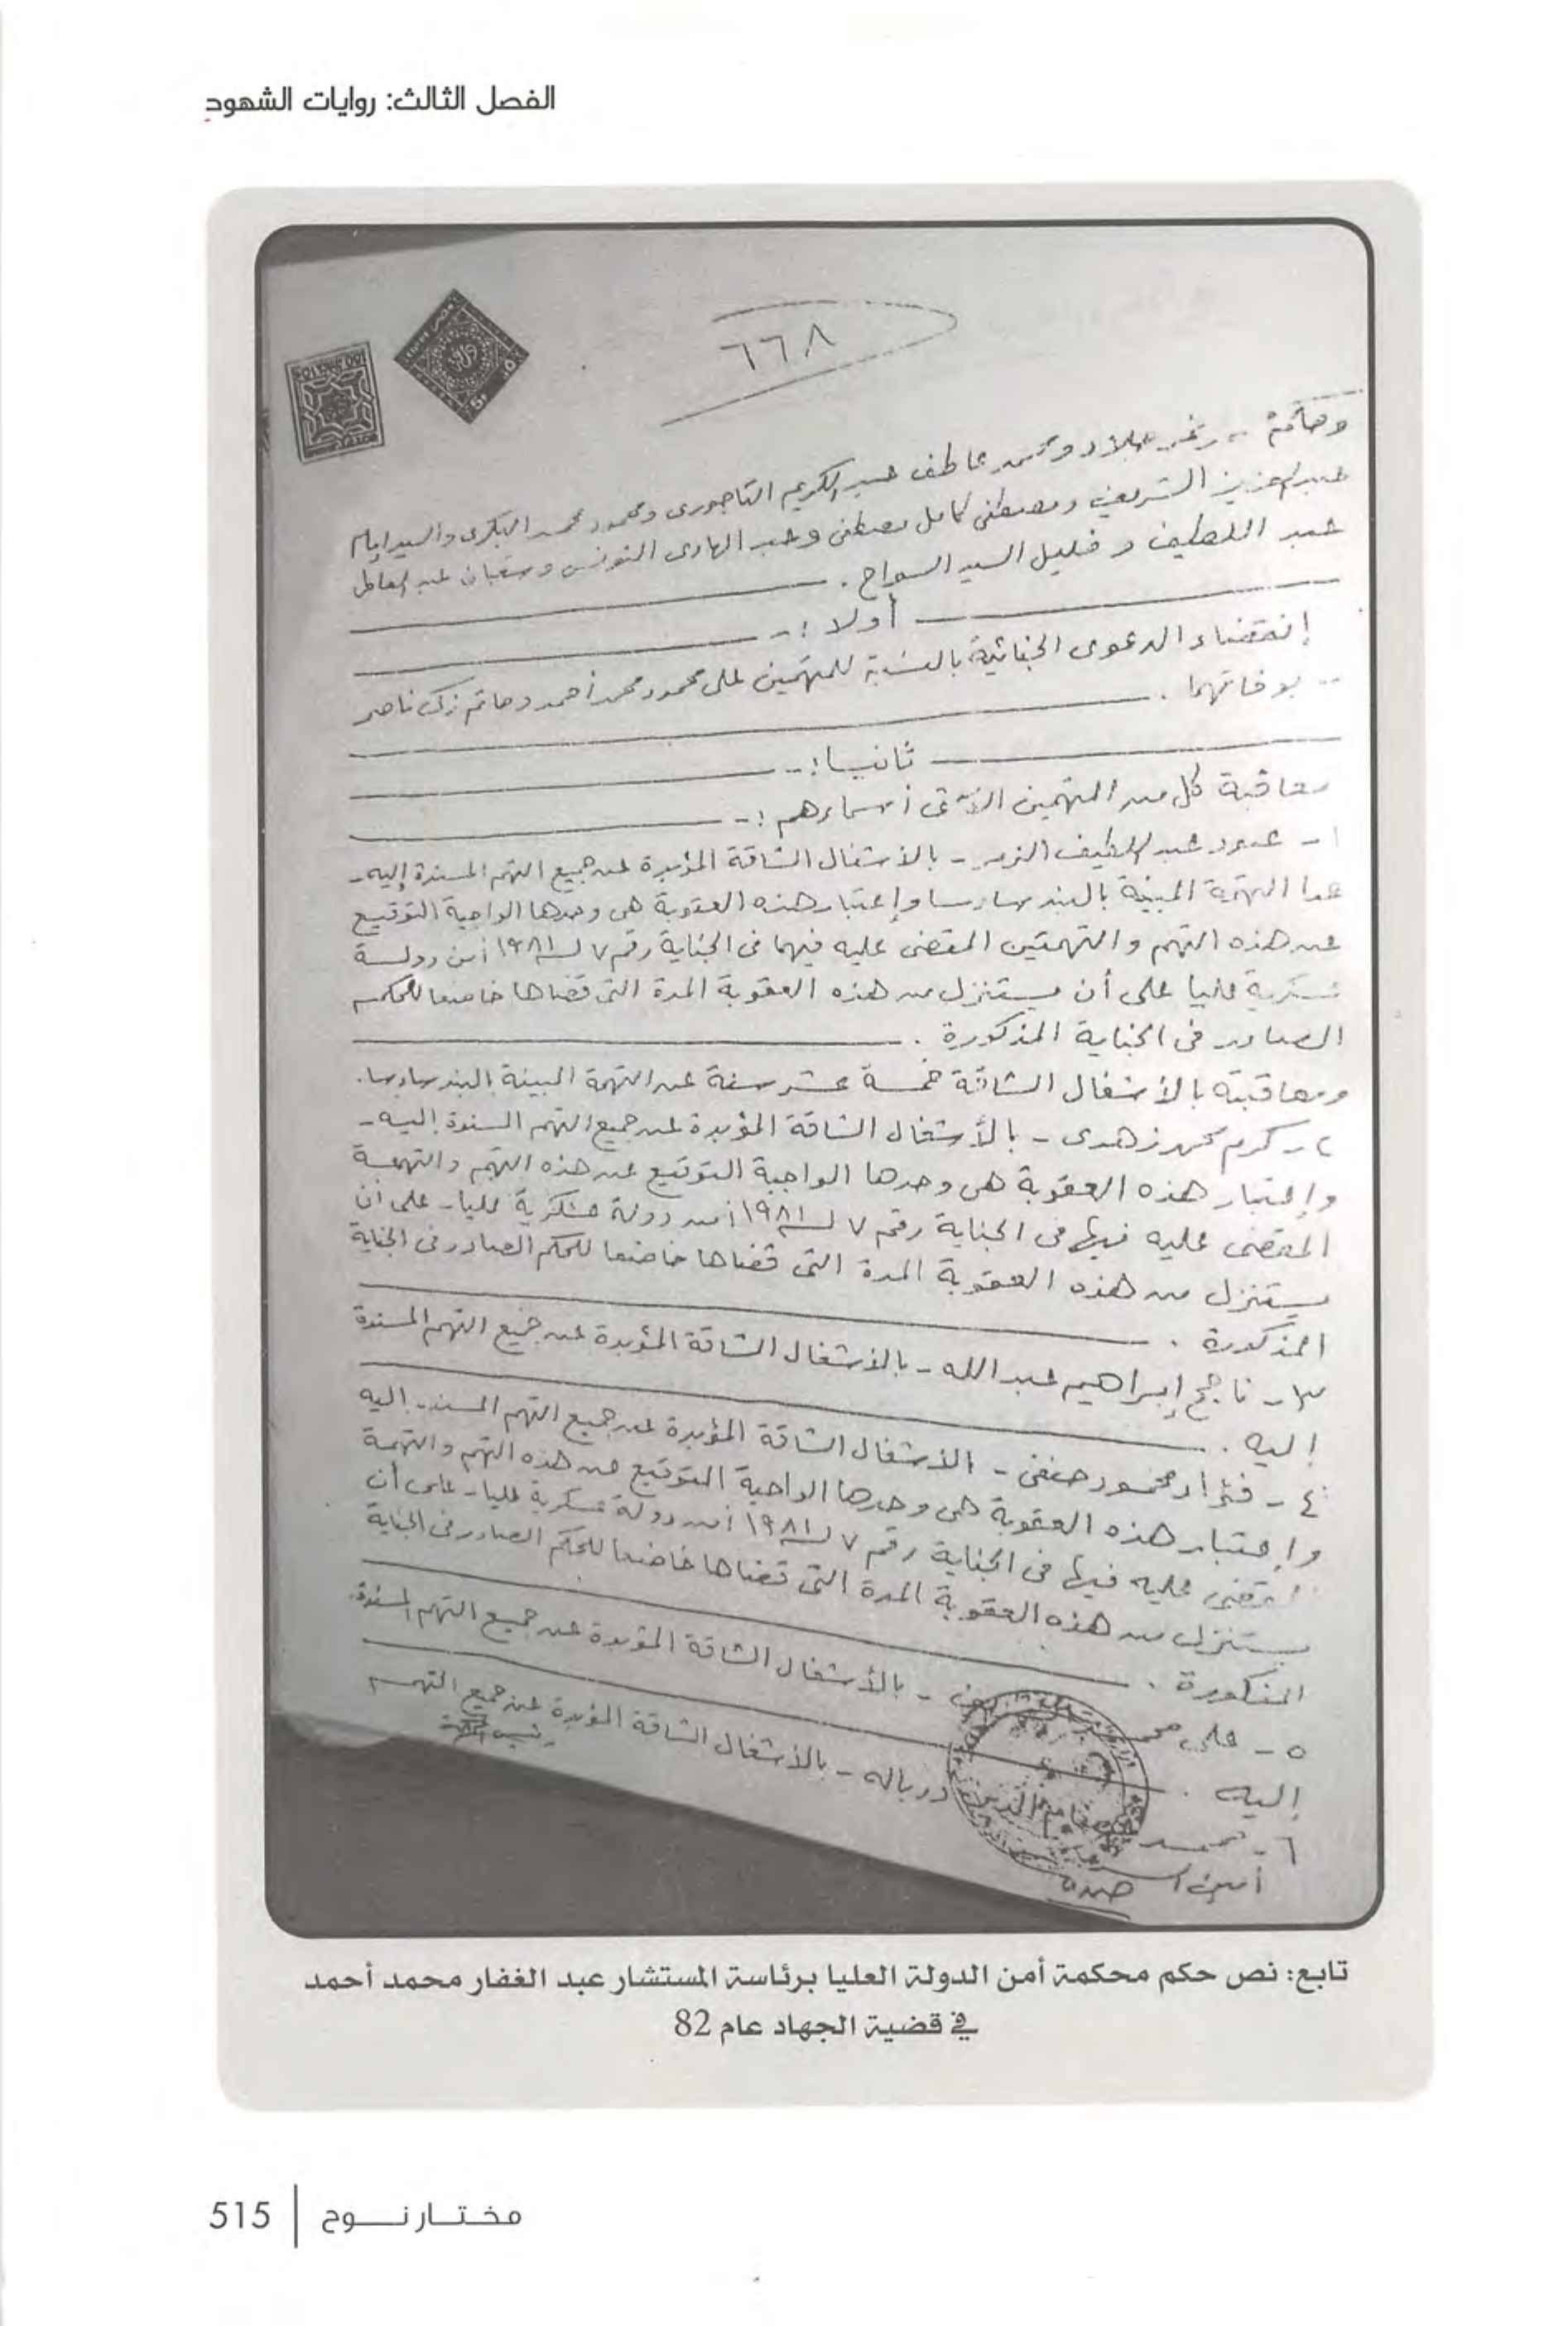 الفصل الثالث: روايات الشهود
٦٦٨
عاطف عبد الكريم التاجورى ومحمود محمد البكرى والسيد إمام
عبد العزيز الشريف ومصطفى كامل مصطفى وعبد الهادى التونسى وشعبان عبد العاطى
عبد اللطيف و خليل السيد السواح .
أولا :-
إنقضاء الدعوى الجنائية بالنسبة للمتهمين على محمود محمد أحمد وحاتم زكى ناصر
بوفاتهما .
ثانيا :-
معاقبة كل من المتهمين الآتى أسماءهم :-
١- عبود عبد اللطيف الزمر - بالأشغال الشاقة المؤبدة عن جميع التهم المسندة إليه -
عدا التهمة المبينة بالبند سادسا وإعتبار هذه العقوبة هى وحدها الواجبة التوقيع
عن هذه التهم والتهمتين المقضى عليه فيهما فى الجناية رقم ٧ لسنة ١٩٨١ أمن دولة
عسكرية عليا على أن يستنزل من هذه العقوبة المدة التى قضاها خاضعا للحكم
الصادر فى الجناية المذكورة .
ومعاقبته بالأشغال الشاقة خمسة عشر سنة عن التهمة المبينة بالبند سادسا .
٢- كرم محمد زهدى - بالأشغال الشاقة المؤبدة عن جميع التهم المسندة إليه -
وإعتبار هذه العقوبة هى وحدها الواجبة التوقيع عن هذه التهم والتهمة
المقضى عليه فيها فى الجناية رقم ٧ لسنة ١٩٨١ أمن دولة عسكرية عليا - على أن
يستنزل من هذه العقوبة المدة التى قضاها خاضعا للحكم الصادر فى الجناية
المذكورة .
٣- ناجح إبراهيم عبد الله - بالأشغال الشاقة المؤبدة عن جميع التهم المسندة
إليه .
٤- فؤاد محمود حنفى - الأشغال الشاقة المؤبدة عن جميع التهم المسندة إليه
وإعتبار هذه العقوبة هى وحدها الواجبة التوقيع عن هذه التهم والتهمة
المقضى عليه فيها فى الجناية رقم ٧ لسنة ١٩٨١ أمن دولة عسكرية عليا - على أن
يستنزل من هذه العقوبة المدة التى قضاها خاضعا للحكم الصادر فى الجناية
المذكورة .
٥- على محمد الشريف - بالأشغال الشاقة المؤبدة عن جميع التهم المسندة
إليه .
٦- محمد عصام الدين درباله - بالأشغال الشاقة المؤبدة عن جميع التهم
أمين السر
رئيس المحكمة
تابع: نص حكم محكمة أمن الدولة العليا برئاسة المستشار عبد الغفار محمد أحمد
في قضية الجهاد عام 82
مختار نوح | 515